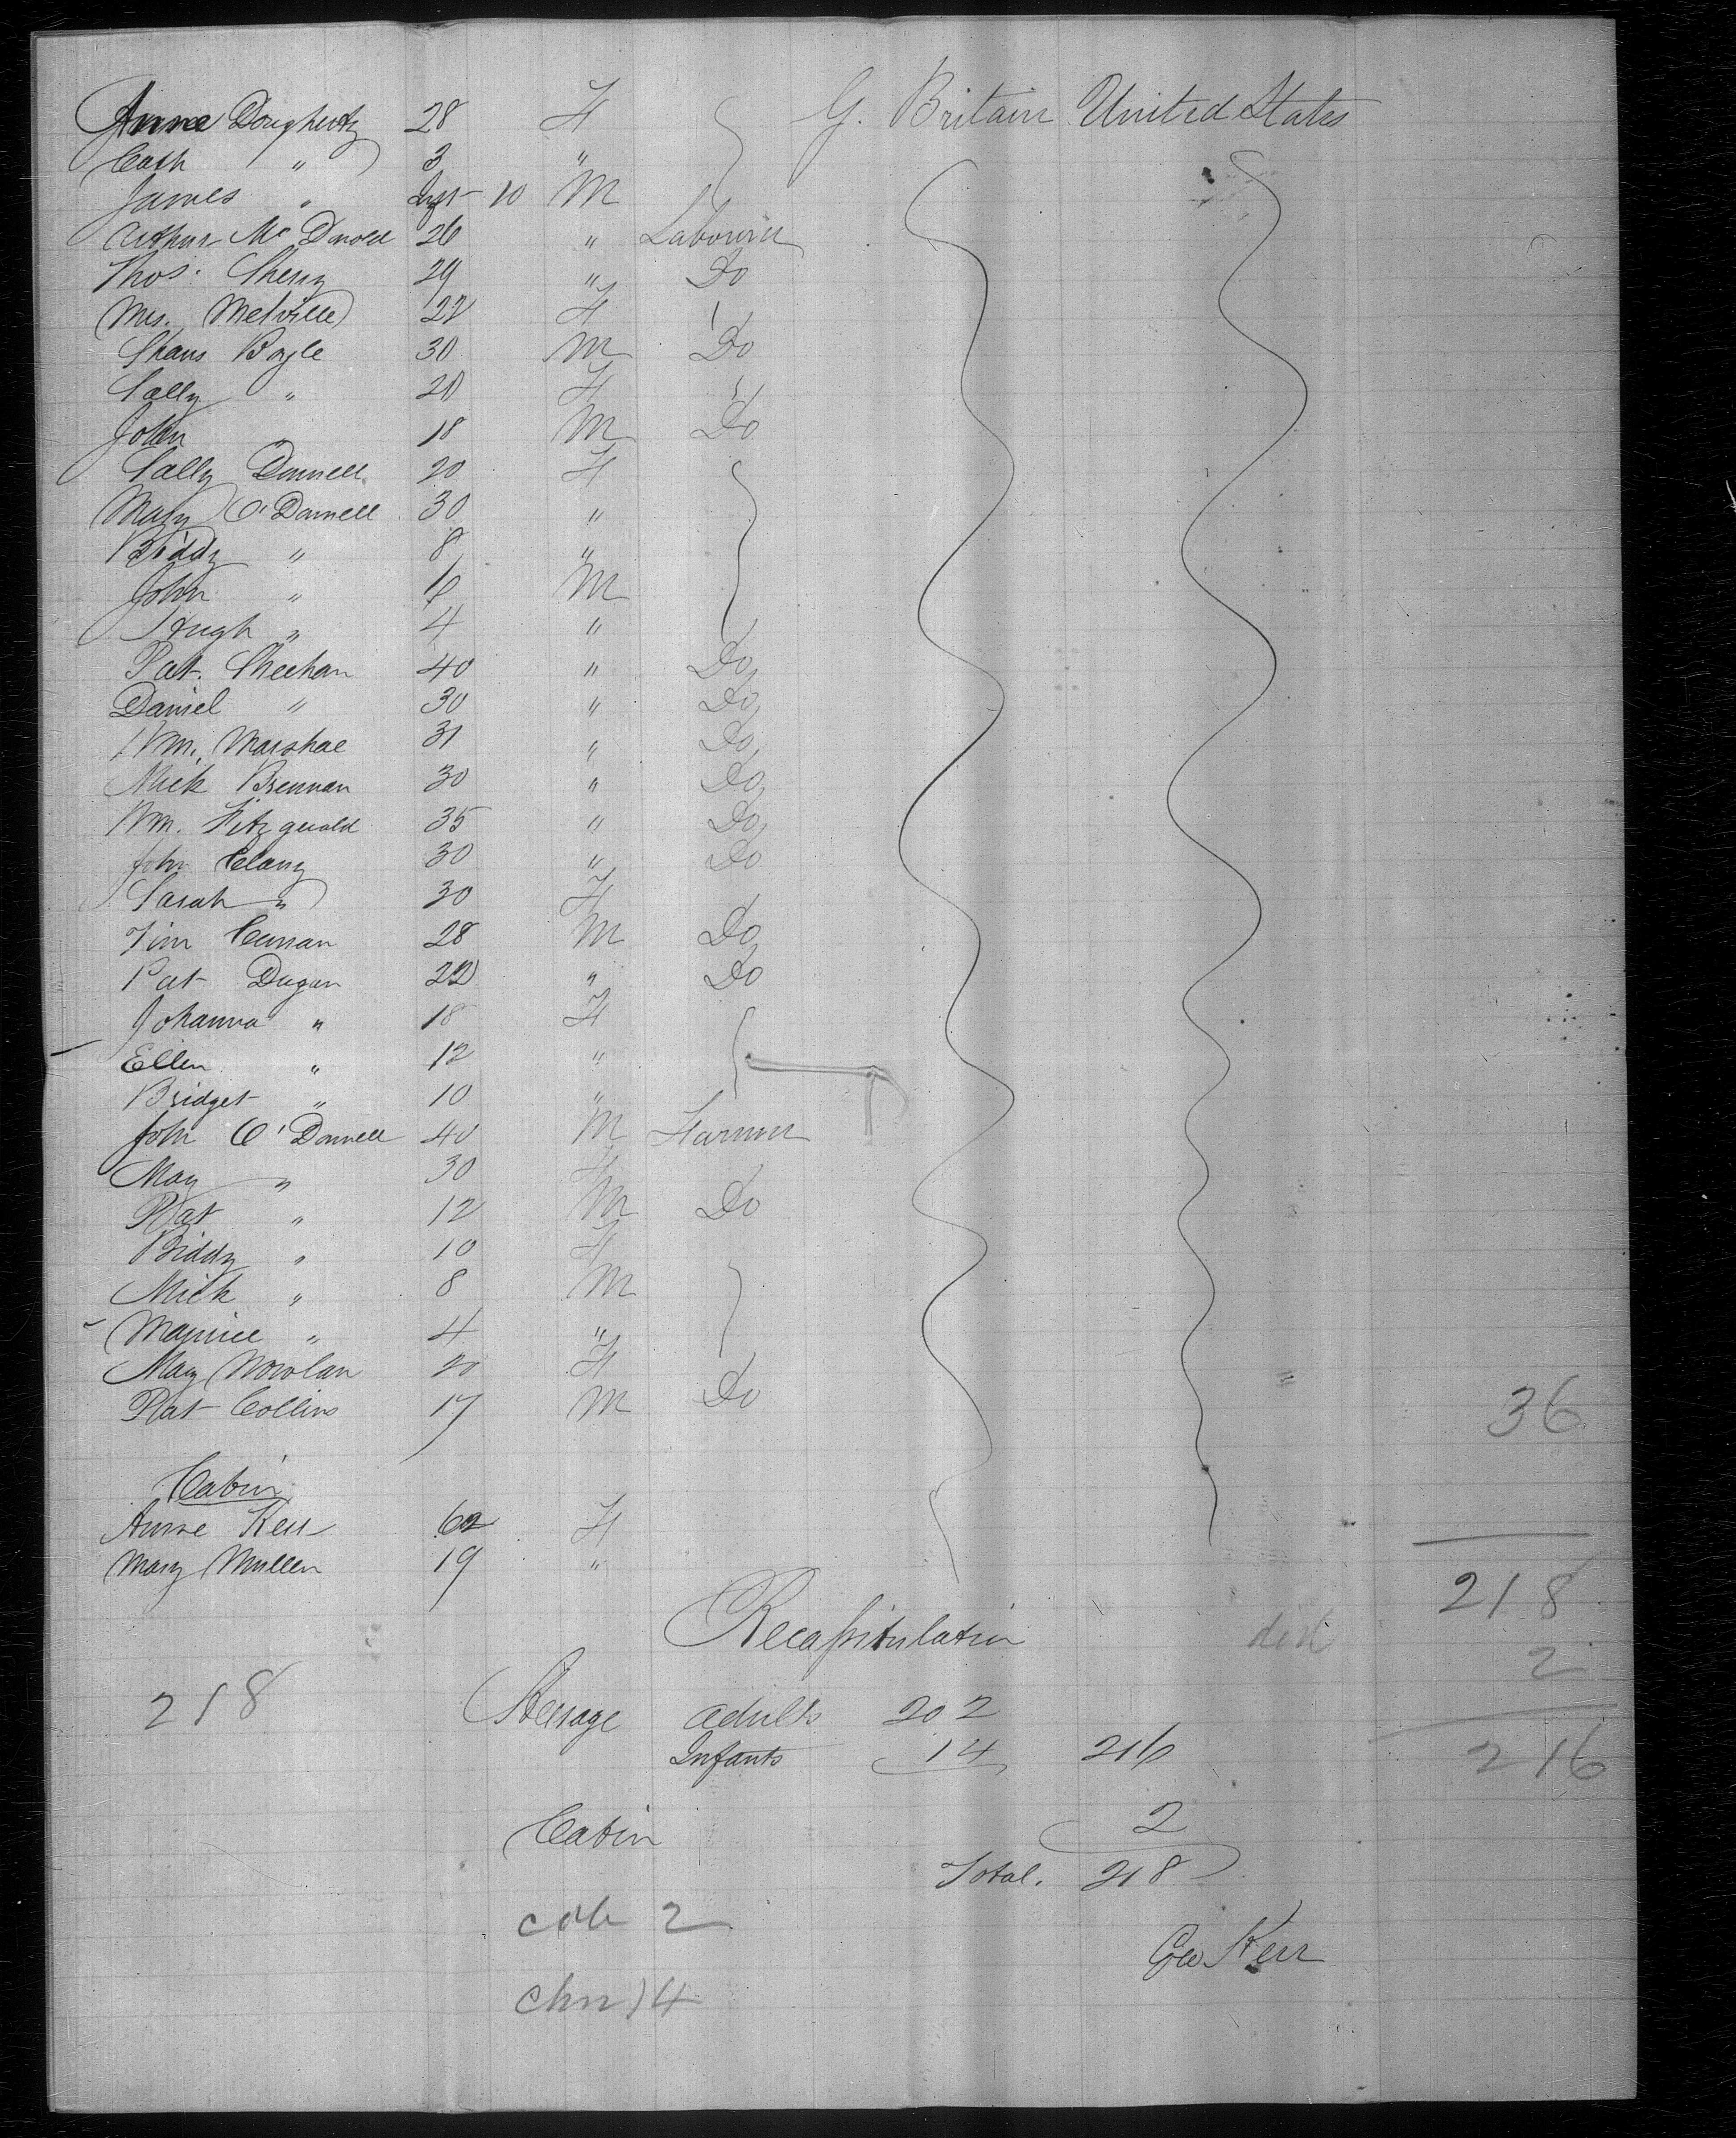 Anne Dougherty 28 F G. Britain United States
Cath " 3 "
James " Inft 10 M
Arthur Mc Donold 26 " Labourer
Thos. Sherry 29 " Do
Mrs. Melville 22 F
Chars Boyle 30 M Do
Sally " 20 F
John " 18 M Do
Sally Donnell 20 F
Mary O'Donnell 30 "
Biddy " 8 "
John " 6 M
Hugh " 4 "
Pat. Sheehan 40 " Do
Daniel " 30 " Do
Wm. Marshal 31 " Do
Mick Brennan 30 " Do
Wm. Fitzgerald 35 " Do
John Clany 30 " Do
Sarah " 30 F
Tim Curran 28 M Do
Pat Dugan 22 " Do
Johanna " 18 F
Ellen " 12 "
Bridget " 10 "
John O'Donnell 40 M Farmer
May " 30 F
Pat " 12 M Do
Biddy " 10 F
Mick " 8 M
Maurice " 4 "
May Nowlan 20 F
Pat Collins 17 M Do 36
Cabin
Anne Kerr 62 F
Mary Mullen 19 "
218
Recapitulation
2
218 Steerage adults 202
Infants 14 216 216
Cabin 2
Total. 218
cab 2
Geo Kerr
chn 14